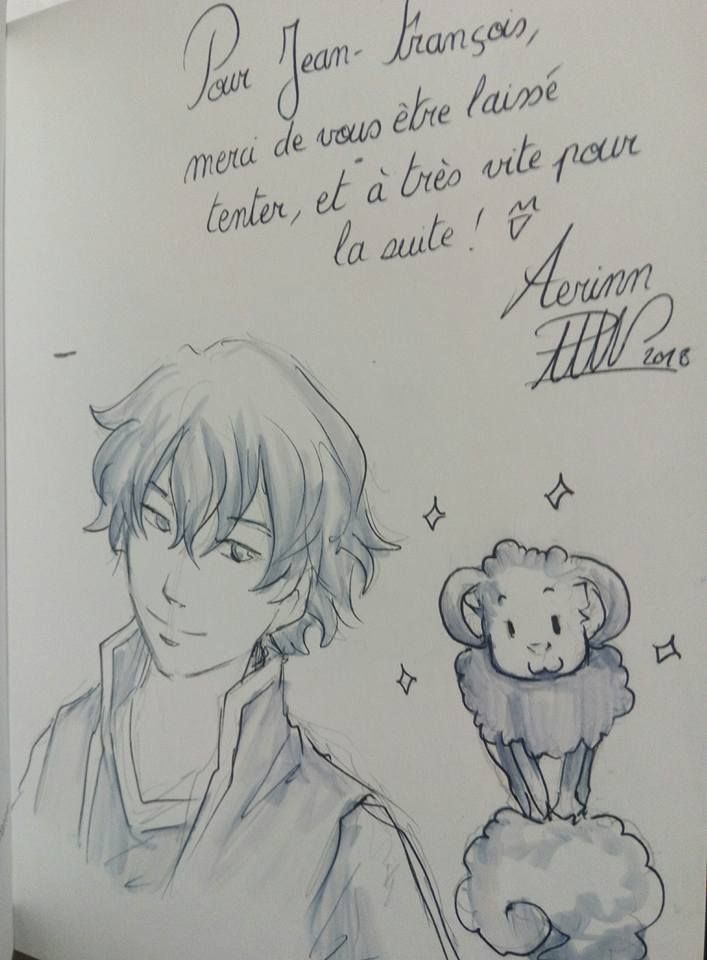 Pour Jean-François,
merci de vous être laissé
tenter, et à très vite pour
la suite !
Aerinn
2018